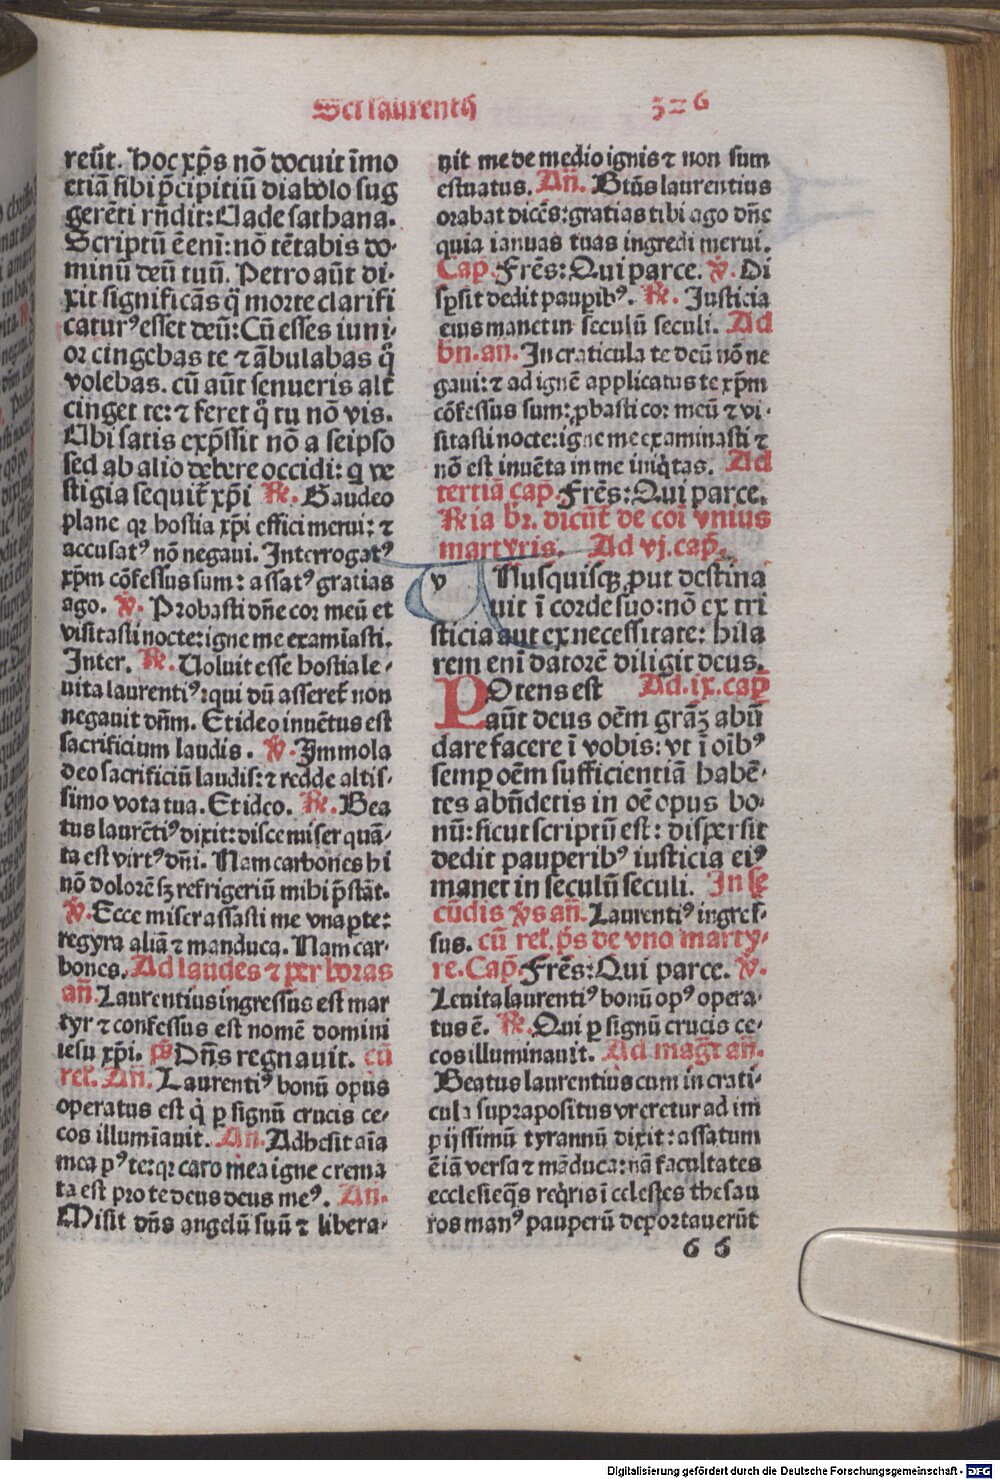 Scī laurentij 326
reūt. Hoc xp̄s nō docuit īmo
etiā sibi p̄cipitiū diabolo sug
gerēti rn̄dit: Uade sathana.
Scriptū ē eni: nō tētabis do-
minū deū tuū. Petro aūt di-
xit significās q̄ morte clarifi
catur⁹ esset deū: Cū esses iuni-
or cingebas te ⁊ ābulabas q̄
volebas. cū aūt senueris alt̄
cinget te: ⁊ feret q̄ tu nō vis.
Ubi satis exp̄ssit nō a seipso
sed ab alio debere occidi: q ve
stigia sequit̄ xp̄i R̄. Gaudeo
plane qꝛ hostia xp̄i effici merui: ⁊
accusat⁹ nō negaui. Interrogat⁹
xp̄m cōfessus sum: assat⁹ gratias
ago. v̄. Probasti dn̄e cor meū et
visitasti nocte: igne me examīasti.
Inter. R̄. Uoluit esse hostia le-
uita laurenti⁹: qui dū asseret̄ non
negauit dn̄m. Et ideo inuētus est
sacrificium laudis. v̄. Immola
deo sacrificiū laudis: ⁊ redde altis-
simo vota tua. Et ideo. R̄. Bea
tus laurēti⁹ dixit: disce miser quā-
ta est virt⁹ dn̄i. Nam carbones hi
nō dolorē sꝫ refrigeriū mihi p̄stāt.
v̄. Ecce miser assasti me vna pte:
regyra aliā ⁊ manduca. Nam car-
bones. Ad laudes ⁊ per horas
an̄. Laurentius ingressus est mar
tyr ⁊ confessus est nomē domini
iesu xp̄i. p̄s Dn̄s regnauit. cū
rel̄. An̄. Laurenti⁹ bonū opus
operatus est q̄ p signū crucis ce-
cos illumīauit. An̄. Adhesit aīa
mea p⁹ te: qꝛ caro mea igne crema
ta est pro te deus deus me⁹. An̄.
Misit dn̄s angelū suū ⁊ libera-
uit me de medio ignis ⁊ non sum
estuatus. An̄. Btūs laurentius
orabat dicēs: gratias tibi ago dn̄e
quia ianuas tuas ingredi merui.
Cap̄. Frēs: Qui parce. v̄. Di
spsit dedit paupib⁹. R̄. Justicia
eius manet in seculū seculi. Ad
bn̄. an̄. In craticula te deū nō ne
gaui: ⁊ ad ignē applicatus te xp̄m
cōfessus sum: ꝓbasti cor meū ⁊ vi-
sitasti nocte: igne me examinasti ⁊
nō est inuēta in me iniq̄tas. Ad
tertiā cap̄. Frēs: Qui parce.
R̄ia br̄. dicūt̄ de coī vnius
martyris. Ad vj. cap̄.
v Nusquisqꝫ put destina
uit ī corde suo: nō ex tri
sticia aut ex necessitate: hila
rem eni datorē diligit deus.
POtens est Ad. ix. cap̄
aūt deus oēm grāꝫ abū
dare facere ī vobis: vt ī oib⁹
semp oēm sufficientiā habē-
tes abn̄detis in oē opus bo-
nū: sicut scriptū est: dispersit
dedit pauperib⁹ iusticia ei⁹
manet in seculū seculi. In se
cūdis vs an̄. Laurenti⁹ ingres-
sus. cū rel̄. ps de vno marty-
re. Cap̄. Frēs: Qui parce. v̄.
Leuita laurenti⁹ bonū op⁹ opera-
tus ē. R̄. Qui p signū crucis ce-
cos illuminauit. Ad magr̄. an̄.
Beatus laurentius cum in crati-
cula suprapositus vreretur ad im
pijssimū tyrannū dixit: assatum
ē iā versa ⁊ māduca: nā facultates
ecclesie q̄s req̄ris ī celestes thesau
ros man⁹ pauperū deportauerūt
G G
Digitalisierung gefördert durch die Deutsche Forschungsgemeinschaft - DFG